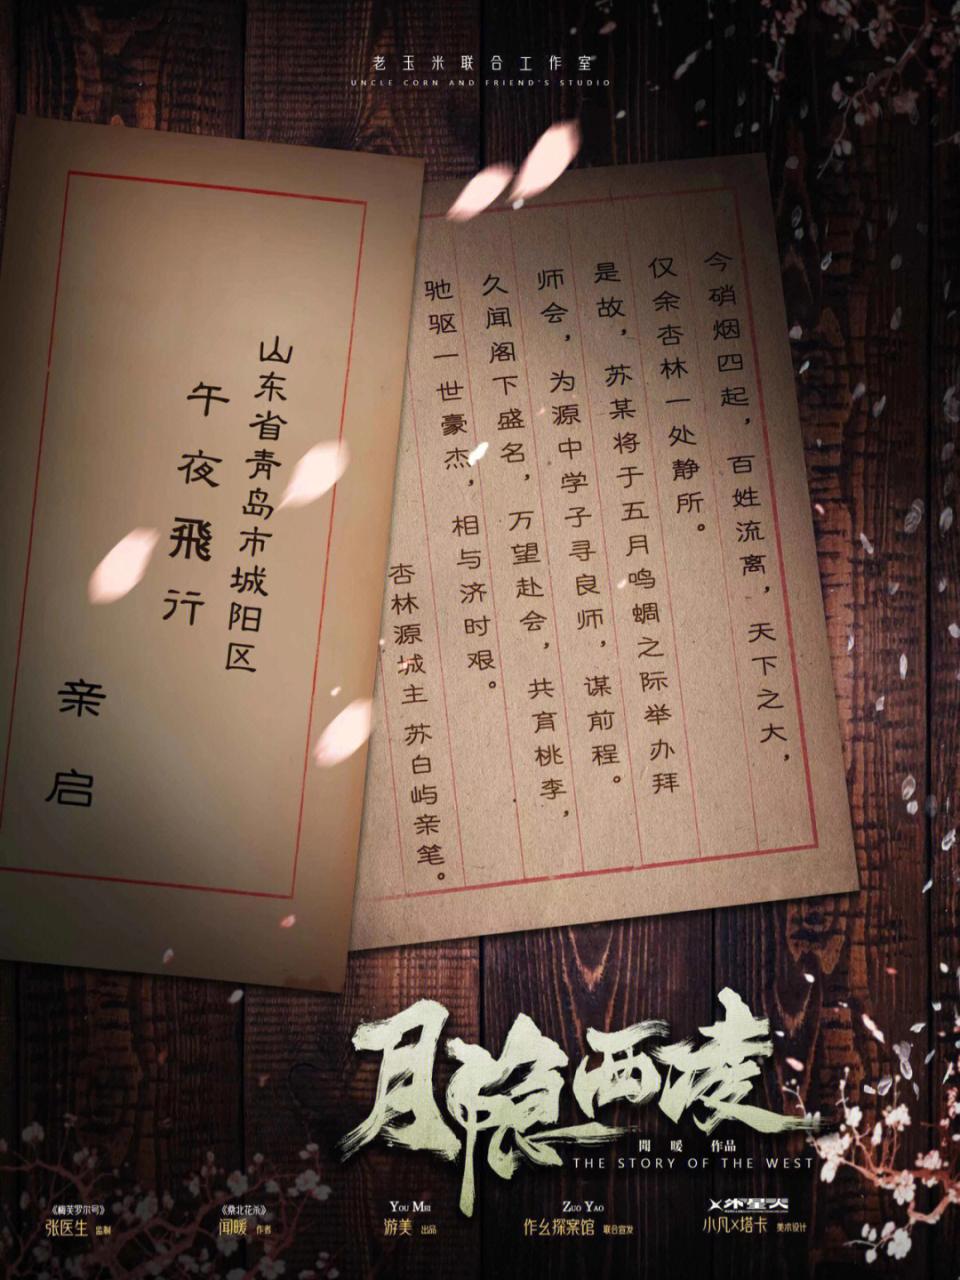 老玉米联合工作室
UNCLE CORN AND FRIEND'S STUDIO
今硝烟四起，百姓流离，天下之大，
仅余杏林一处静所。
是故，苏某将于五月鸣蜩之际举办拜
师会，为源中学子寻良师，谋前程。
久闻阁下盛名，万望赴会，共育桃李，
驰驱一世豪杰，相与济时艰。
杏林源城主 苏白屿亲笔。
山东省青岛市城阳区
午夜飛行
亲启
月隐西陵
聞暖 作品
THE STORY OF THE WEST
《梅芙罗尔号》
张医生 监制
《桑北花杀》
闻暖 作者
YOU MEI
游美 出品
ZUO YAO
作幺探案馆 联合宣发
小凡×塔卡 美术设计